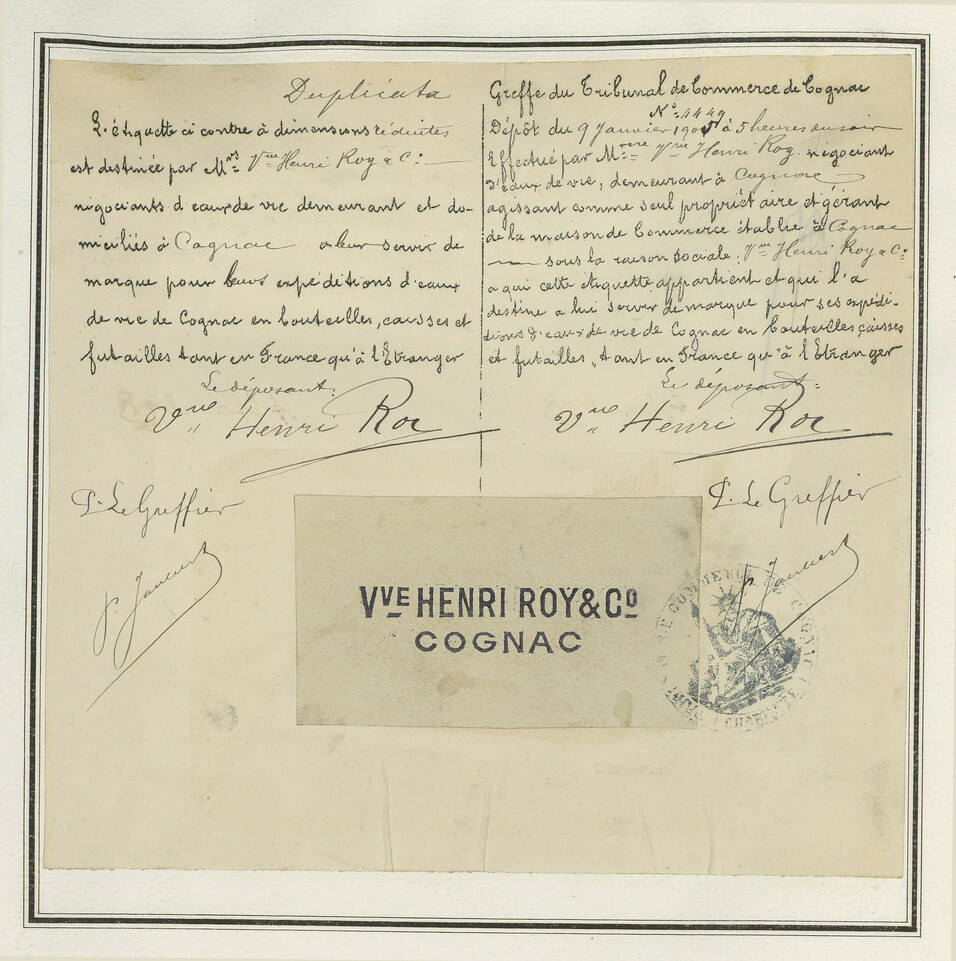 Duplicata
L'étiquette ci contre à dimensions réduites
est destinée par Mrs Vve Henri Roy & C:
négociants d'eaux de vie demeurant et do-
miciliés à Cognac à leur servir de
marque pour leurs expéditions d'eaux
de vie de Cognac en bouteilles, caisses et
futailles tant en France qu'à l'Etranger
Le déposant:
Vve Henri Roy
P. Le Greffier
Greffe du Tribunal de Commerce de Cognac
No: 4449
Dépôt du 9 Janvier 1905 à 5 heures du soir
Effectué par Mme Vve Henri Roy négociant
d'eaux de vie, demeurant à Cognac
agissant comme seul propriétaire et gérant
de la maison de Commerce établie à Cognac
sous la raison sociale: Vve Henri Roy & C:
a qui cette étiquette appartient et qui l'a
destine a lui servir de marque pour ses expédi-
tions d'eaux de vie de Cognac en bouteilles caisses
et futailles, tant en France qu'à l'Etranger
Le déposant:
Vve Henri Roy
P. Le Greffier
VVE HENRI ROY & CO
COGNAC